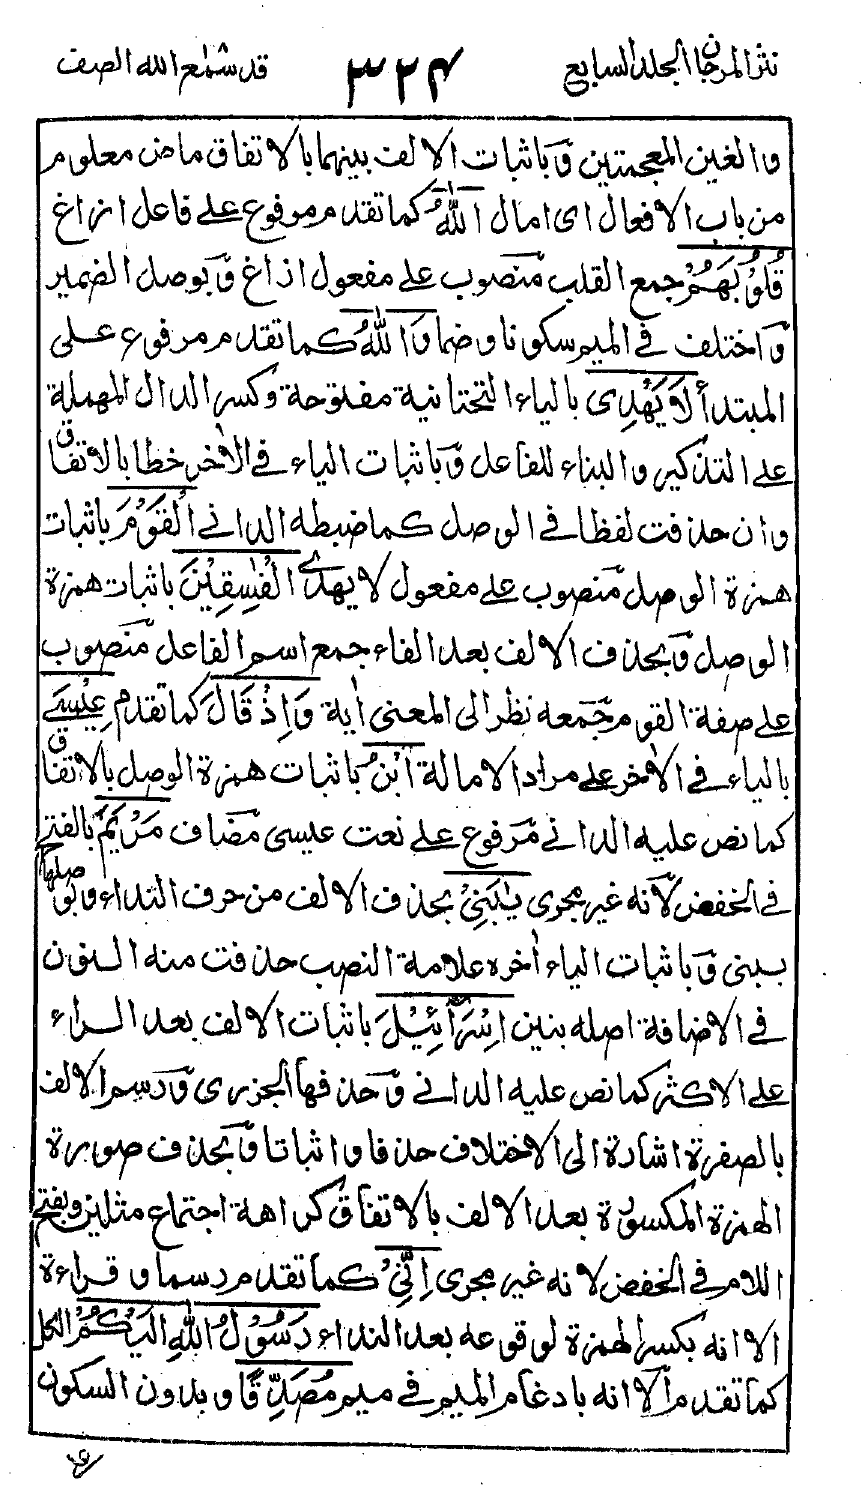 نثر المرجان الجلد السابع ٣٢٤ قد سمع الله الصف
والغين المعجمتين وَباثبات الالف بينهما بالاتفاق ماض معلوم
من باب الافعال اى امال اَللّٰهُ كما تقدم مرفوع على فاعل ازاغ
قُلُوْبَهُمْ جمع القلب منصوب على مفعول ازاغ وَبوصل الضمير
وَاختلف فى الميم سكونا وضما وَاللّٰهُ كما تقدم مرفوع على
المبتدأ لَا يَهْدِى بالياء التحتانية مفتوحة وكسر الدال المهملة
على التذكير والبناء للفاعل وَباثبات الياء فى الاٰخر خطا بالاتفاق
وان حذفت لفظا فى الوصل كما ضبطه الدانى الْقَوْمَ باثبات
همزة الوصل منصوب على مفعول لا يهدى الْفٰسِقِيْنَ باثبات همزة
الوصل وَبحذف الالف بعد الفاء جمع اسم الفاعل منصوب
على صفة القوم جمعه نظرا الى المعنى اٰية وَاِذْ قَالَ كما تقدم عِيْسَے
بالياء فى الاٰخر على مراد الامالة ابْنُ باثبات همزة الوصل بالاتفاق
كما نص عليه الدانى مرفوع على نعت عيسى مضاف مَرْيَمَ بالفتح
فى الخفض لانه غير مجرى يٰبَنِىْ بحذف الالف من حرف النداء وبوصلها
ببنى وَباثبات الياء اٰخره علامة النصب حذفت منه النون
فى الاضافة اصله بنين اِسْرَآئِيْلَ باثبات الالف بعد الراء
على الاكثر كما نص عليه الدانى وَحذفها الجزرى وَرسم الالف
بالصفرة اشارة الى الاختلاف حذفا واثباتا وَبحذف صورة
الهمزة المكسورة بعد الالف بالاتفاق كراهة اجتماع مثلين وبفتح
اللام فى الخفض لانه غير مجرى اِنِّىْ كما تقدم رسما وقراءة
الا انه بكسر الهمزة لوقوعه بعد النداء رَسُوْلُ اللّٰهِ اِلَيْكُمْ الكل
كما تقدم الا انه بادغام الميم فى ميم مُصَدِّقًا وبدون السكون